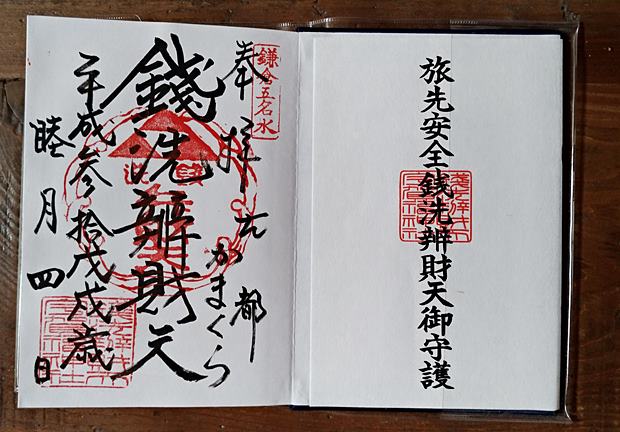 旅先安全錢洗辨財天御守護
鎌倉五名水
奉拝
古都かまくら
錢洗辨財天
平成参拾戊戌歳
睦月四日